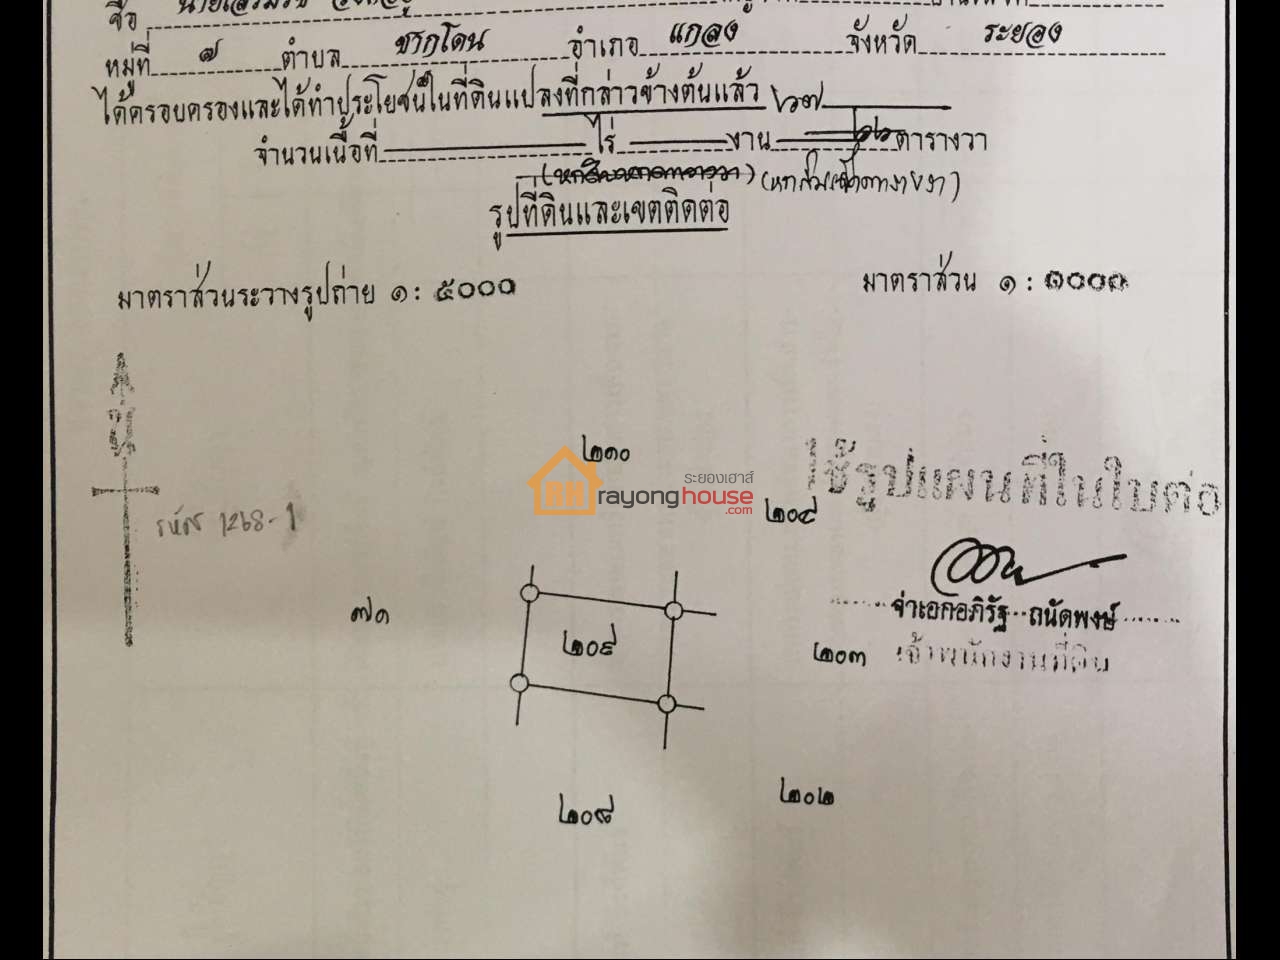 ชื่อ
หมู่ที่ ๗ ตำบล ชากโดน อำเภอ แกลง จังหวัด ระยอง
ได้ครอบครองและได้ทำประโยชน์ในที่ดินแปลงที่กล่าวข้างต้นแล้ว ๖๗
จำนวนเนื้อที่ ไร่ งาน ตารางวา
รูปที่ดินและเขตติดต่อ
มาตราส่วนระวางรูปถ่าย ๑ : ๕๐๐๐
มาตราส่วน ๑ : ๑๐๐๐
๒๑๐
ระยองเฮาส์
rayonghouse
.com
๒๐๔
ใช้รูปแผนที่ในใบต่อ
รหัส 1268-1
จ่าเอกอภิรัฐ ถนัดพงษ์
เจ้าพนักงานที่ดิน
๗๑
๒๐๙
๒๐๓
๒๐๘
๒๐๒